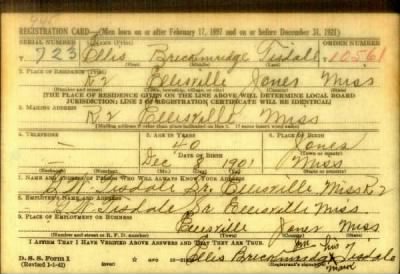 REGISTRATION CARD—(Men born on or after February 17, 1897 and on or before December 31, 1921)
SERIAL NUMBER 1. NAME (Print) ORDER NUMBER
T 723 Ellis Breckinridge Tisdale T 10561
(First) (Middle) (Last)
2. PLACE OF RESIDENCE (Print)
R 2 Ellisville Jones Miss
(Number and street) (Town, township, village, or city) (County) (State)
[THE PLACE OF RESIDENCE GIVEN ON THE LINE ABOVE WILL DETERMINE LOCAL BOARD
JURISDICTION; LINE 2 OF REGISTRATION CERTIFICATE WILL BE IDENTICAL]
3. MAILING ADDRESS
R 2 Ellisville Miss
[Mailing address if other than place indicated on line 2. If same insert word same]
4. TELEPHONE 5. AGE IN YEARS 6. PLACE OF BIRTH
— 40 Jones
DATE OF BIRTH (Town or county)
— Dec 8 1901 Miss
(Exchange) (Number) (Mo.) (Day) (Yr.) (State or country)
7. NAME AND ADDRESS OF PERSON WHO WILL ALWAYS KNOW YOUR ADDRESS
Tisdale Sr. Ellisville, Miss R 2
8. EMPLOYER'S NAME AND ADDRESS
Tisdale Sr Ellisville Miss
9. PLACE OF EMPLOYMENT OR BUSINESS
Ellisville Jones Miss
(Number and street or R. F. D. number) (Town) (County) (State)
I AFFIRM THAT I HAVE VERIFIED ABOVE ANSWERS AND THAT THEY ARE TRUE.
D. S. S. Form 1
(Revised 1-1-42) (over) Ellis Breckinridge his X mark Tisdale
(Registrant's signature)